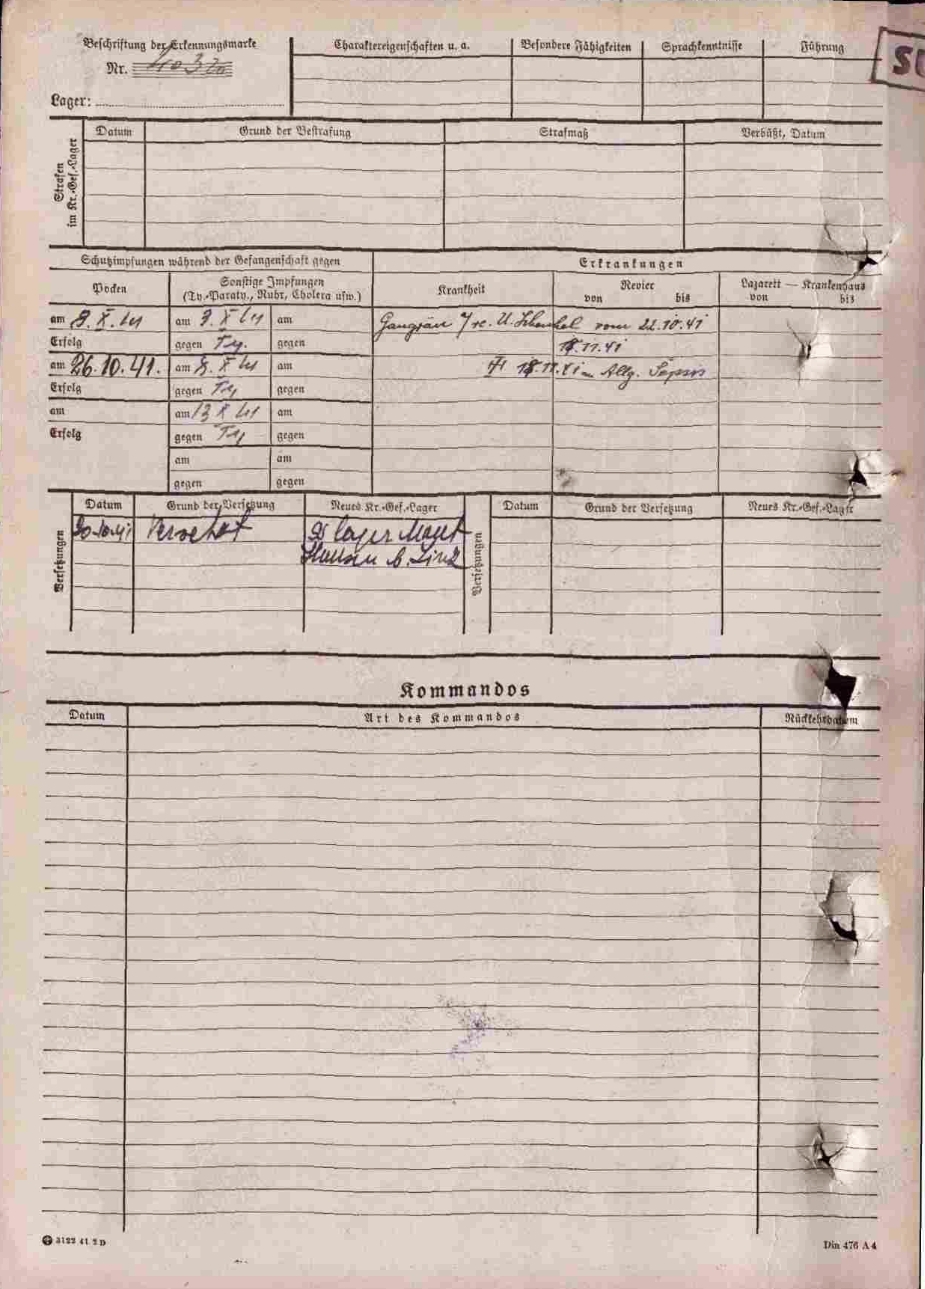 Beschriftung der Erkennungsmarke
Nr.
Lager:
Charaktereigenschaften u. a.
Besondere Fähigkeiten
Sprachkenntnisse
Führung
Strafen im Kr.-Gef.-Lager
Datum
Grund der Bestrafung
Strafmaß
Verbüßt, Datum
Schutzimpfungen während der Gefangenschaft gegen
Erkrankungen
Pocken
Sonstige Impfungen
(Ty.-Paraty., Ruhr, Cholera usw.)
Krankheit
Revier
von bis
Lazarett — Krankenhaus
von bis
am 8. X. 41 am 3. X 41 am
Gangrän re. U. Schenkel vom 22.10.41
Erfolg gegen Ty. gegen
18.11.41
am 26.10.41. am 8. X 41 am
18.11.41 an Allg. Sepsis
Erfolg gegen Ty gegen
am am 13 X 41 am
Erfolg gegen Ty gegen
am am
gegen gegen
Versetzungen
Datum
Grund der Versetzung
Neues Kr.-Gef.-Lager
Versetzungen
Datum
Grund der Versetzung
Neues Kr.-Gef.-Lager
20.10.41 Lager Maut
hausen b. Linz
Kommandos
Datum
Art des Kommandos
Rückkehrdatum
3122 41 2 D
Din 476 A 4